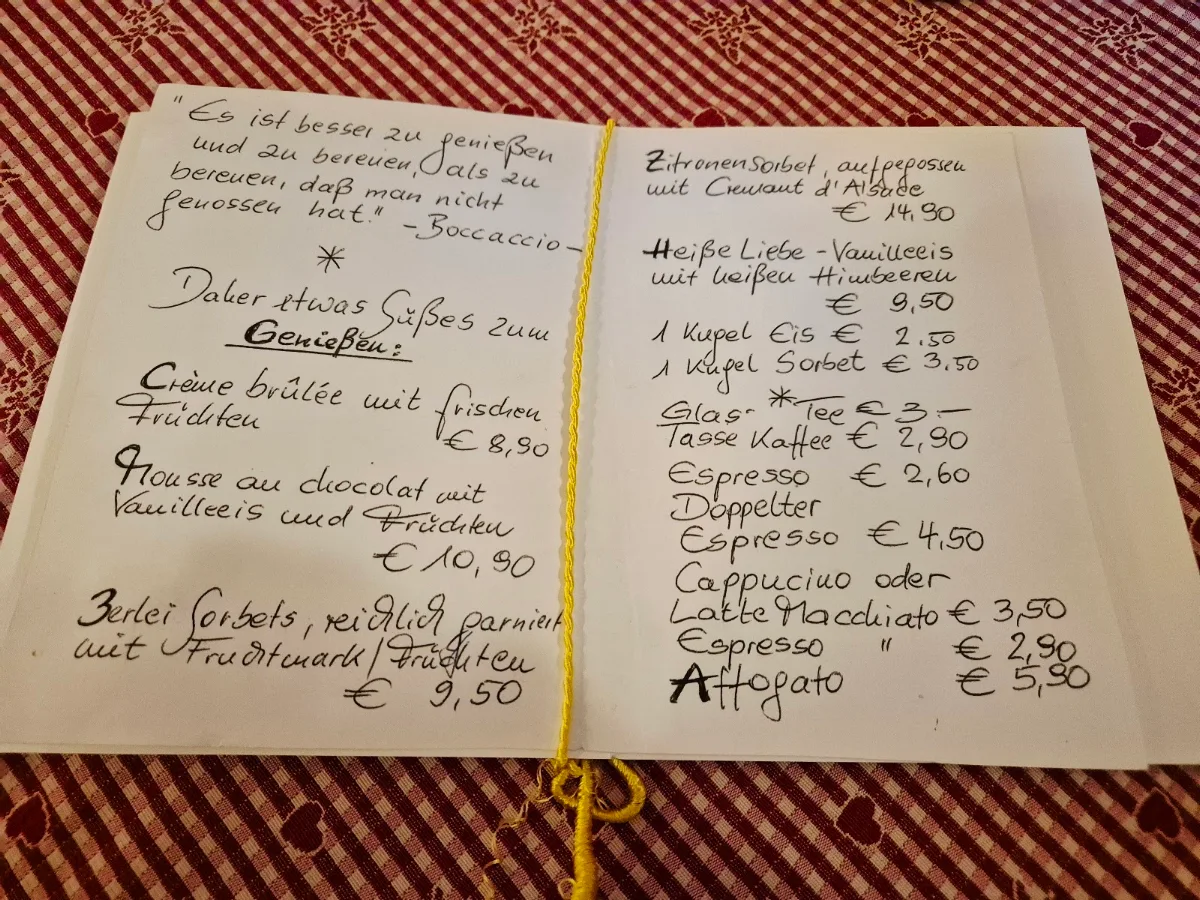 "Es ist besser zu genießen
und zu bereuen, als zu
bereuen, daß man nicht
genossen hat." -Boccaccio-
*
Daher etwas Süßes zum
Genießen:
Crème brûlée mit frischen
Früchten
€ 8,90
Mousse au chocolat mit
Vanilleeis und Früchten
€ 10,90
3erlei Sorbets, reichlich garniert
mit Fruchtmark/Früchten
€ 9,50
Zitronensorbet, aufgegossen
mit Cremant d'Alsace
€ 14,90
Heiße Liebe - Vanilleeis
mit heißen Himbeeren
€ 9,50
1 Kugel Eis € 2.50
1 Kugel Sorbet € 3.50
*
Glas Tee € 3.-
Tasse Kaffee € 2,90
Espresso € 2,60
Doppelter
Espresso € 4,50
Cappucino oder
Latte Macchiato € 3,50
Espresso " € 2,90
Affogato € 5,90